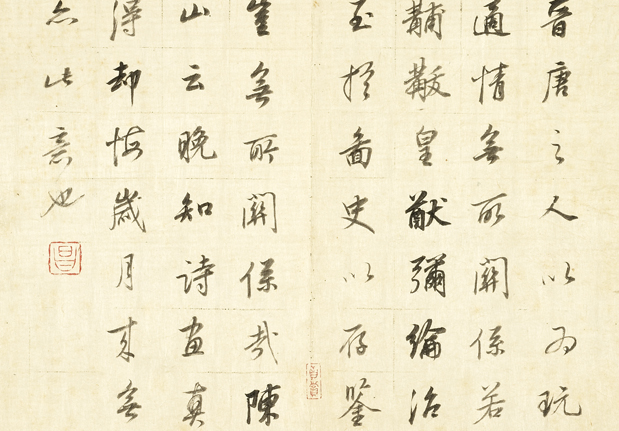 晉唐之人以為玩
適情無所關係若
黼黻皇猷彌綸治
至於圖史以存鑒
豈無所關係哉陳
山云晚知詩畫真
得却悔歲月来無
亦此意也
昌